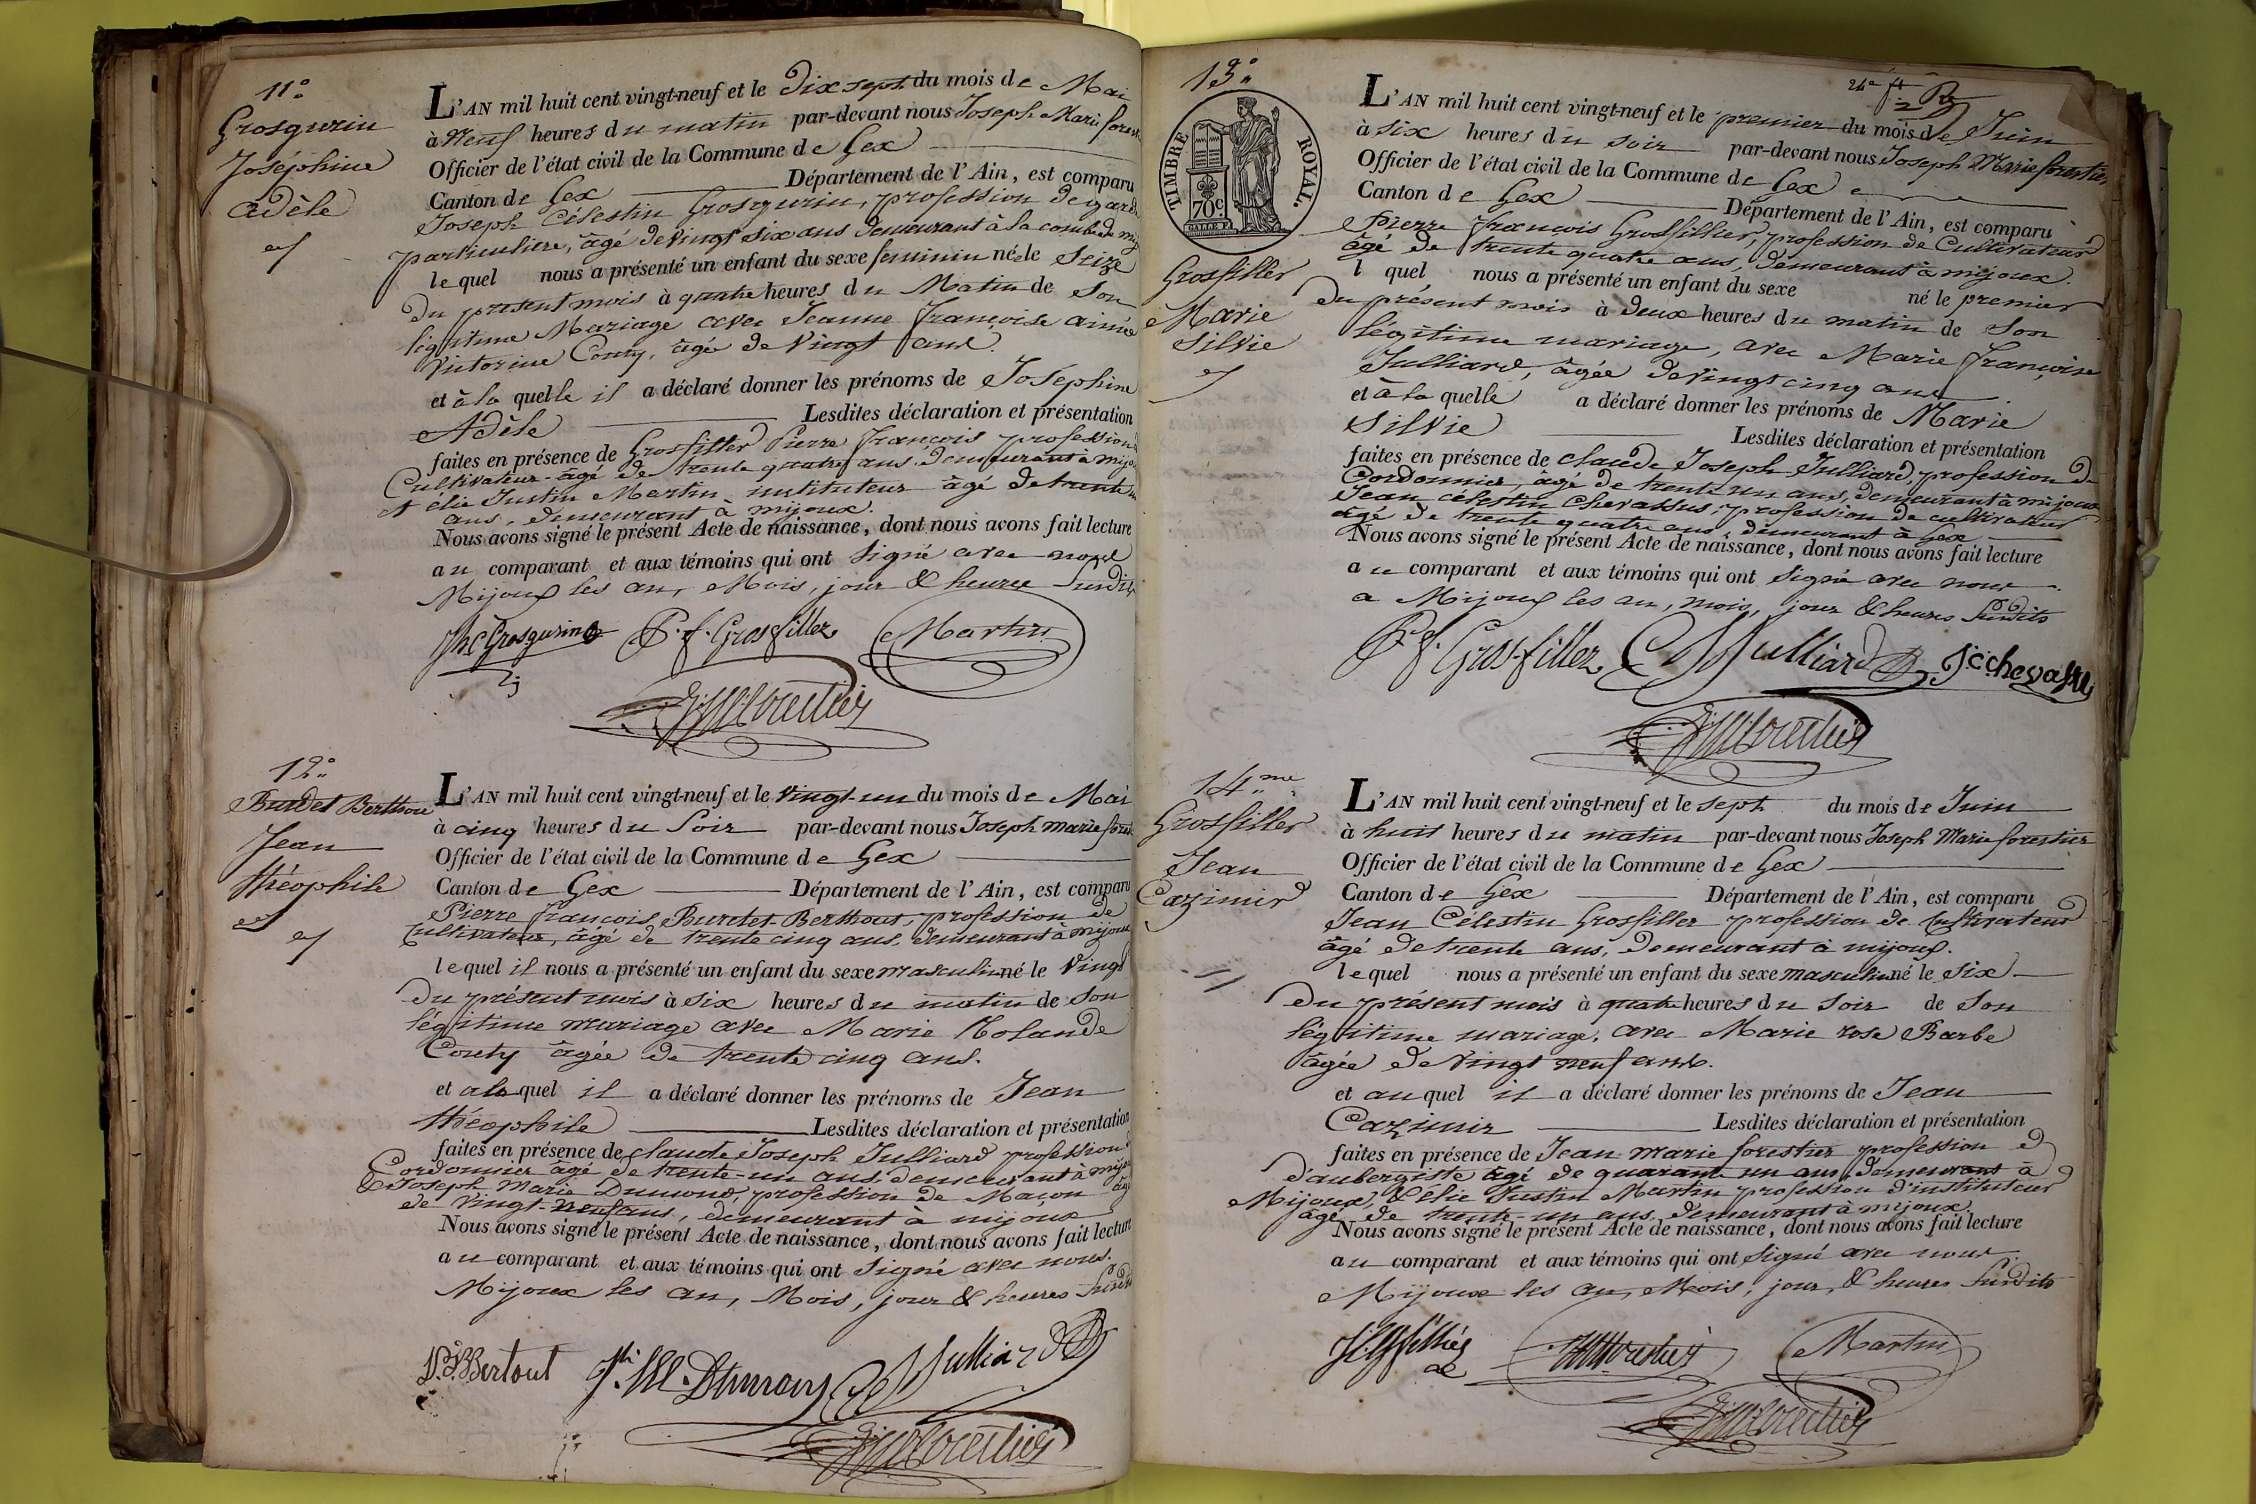 11°
Grosgurin
Joséphine
Adèle
L'AN mil huit cent vingt-neuf et le Dix sept du mois de Mai
à Neuf heures du matin par-devant nous Joseph Marie forest
Officier de l'état civil de la Commune de Gex
Canton de Gex Département de l'Ain, est comparu
Joseph Célestin Grosgurin, profession de garde
particuliere, âgé de vingt six ans demeurant à la combe de mij
lequel nous a présenté un enfant du sexe feminin né le Seize
Du présent mois à quatre heures du Matin de Son
légitime Mariage avec Jeanne françoise aimée
Victorine Conty, âgé de Vingt ans.
et à la quelle il a déclaré donner les prénoms de Joséphine
Adèle Lesdites déclaration et présentation
faites en présence de Grosfiller Pierre françois profession
Cultivateur âgé de trente quatre ans demeurant à mijo
et élie Justin Martin instituteur âgé de trente un
ans, demeurant à mijoux.
Nous avons signé le présent Acte de naissance, dont nous avons fait lecture
au comparant et aux témoins qui ont Signé avec nous
Mijoux les an, Mois, jour & heures Susdits
JhC Grosgurin P. f. Grosfillez Martin
JMForestier
12°
Burdet Berthou
Jean
théophile
L'AN mil huit cent vingt-neuf et le vingt-un du mois de Mai
à cinq heures du Soir par-devant nous Joseph marie forest
Officier de l'état civil de la Commune de Gex
Canton de Gex Département de l'Ain, est comparu
Pierre françois Burdet-Berthout, profession de
Cultivateur, âgé de trente cinq ans, demeurant à mijoux
lequel il nous a présenté un enfant du sexe masculin né le Vingt
Du présent mois à six heures du matin de Son
légitime mariage avec Marie Rolande
Conty âgée de trente cinq ans.
et a la quel il a déclaré donner les prénoms de Jean
théophile Lesdites déclaration et présentation
faites en présence de claude Joseph Julliard profession
Cordonnier âgé de trente-un ans, demeurant à mijoux
& Joseph Marie Dumond, profession de Maçon âgé
de vingt-neuf ans, demeurant à mijoux
Nous avons signé le présent Acte de naissance, dont nous avons fait lecture
au comparant et aux témoins qui ont Signé avec nous.
Mijoux les an, Mois, jour & heures Susdits
P.F.B Bertout Jh M. Dumon CJJulliard
JMForestier
13°
TIMBRE ROYAL.
70c
Grosfiller
Marie
Silvie
L'AN mil huit cent vingt-neuf et le premier du mois de Juin
à six heures du soir par-devant nous Joseph Marie forestier
Officier de l'état civil de la Commune de Gex
Canton de Gex Département de l'Ain, est comparu
Pierre françois Grosfillier, profession de Cultivateur
âgé de trente quatre ans, demeurant à mijoux.
l quel nous a présenté un enfant du sexe né le premier
Du présent mois à Deux heures du matin de Son
légitime mariage, avec Marie françoise
Julliard, âgée de vingt cinq ans
et à la quelle a déclaré donner les prénoms de Marie
Silvie Lesdites déclaration et présentation
faites en présence de claude Joseph Julliard, profession de
Cordonnier, âgé de trente un ans, demeurant à mijoux
Jean célestin Chevassus, profession de cultivateur
âgé de trente quatre ans, demeurant à Gex
Nous avons signé le présent Acte de naissance, dont nous avons fait lecture
au comparant et aux témoins qui ont Signé avec nous
a Mijoux les an, mois, jour & heures Susdits
P. f. Grosfillez CJJulliard Jc chevassus
JMForestier
14me
Grosfiller
Jean
Cazimir
L'AN mil huit cent vingt-neuf et le sept du mois de Juin
à huit heures du matin par-devant nous Joseph Marie forestier
Officier de l'état civil de la Commune de Gex
Canton de Gex Département de l'Ain, est comparu
Jean Célestin Grosfiller profession de Cultivateur
âgé de trente ans, demeurant à mijoux.
lequel nous a présenté un enfant du sexe masculin né le six
Du présent mois à quatre heures du Soir de Son
légitime mariage, avec Marie rose Barbe
âgée de Vingt neuf ans.
et au quel il a déclaré donner les prénoms de Jean
Cazimir Lesdites déclaration et présentation
faites en présence de Jean marie forestier profession
d'aubergiste âgé de quarante un ans demeurant à
Mijoux, & élie Justin Martin profession d'instituteur
âgé de trente-un ans, demeurant à mijoux
Nous avons signé le présent Acte de naissance, dont nous avons fait lecture
au comparant et aux témoins qui ont Signé avec nous
Mijoux les an, Mois, jour, & heures Susdits
JMForestier Martin
JMForestier